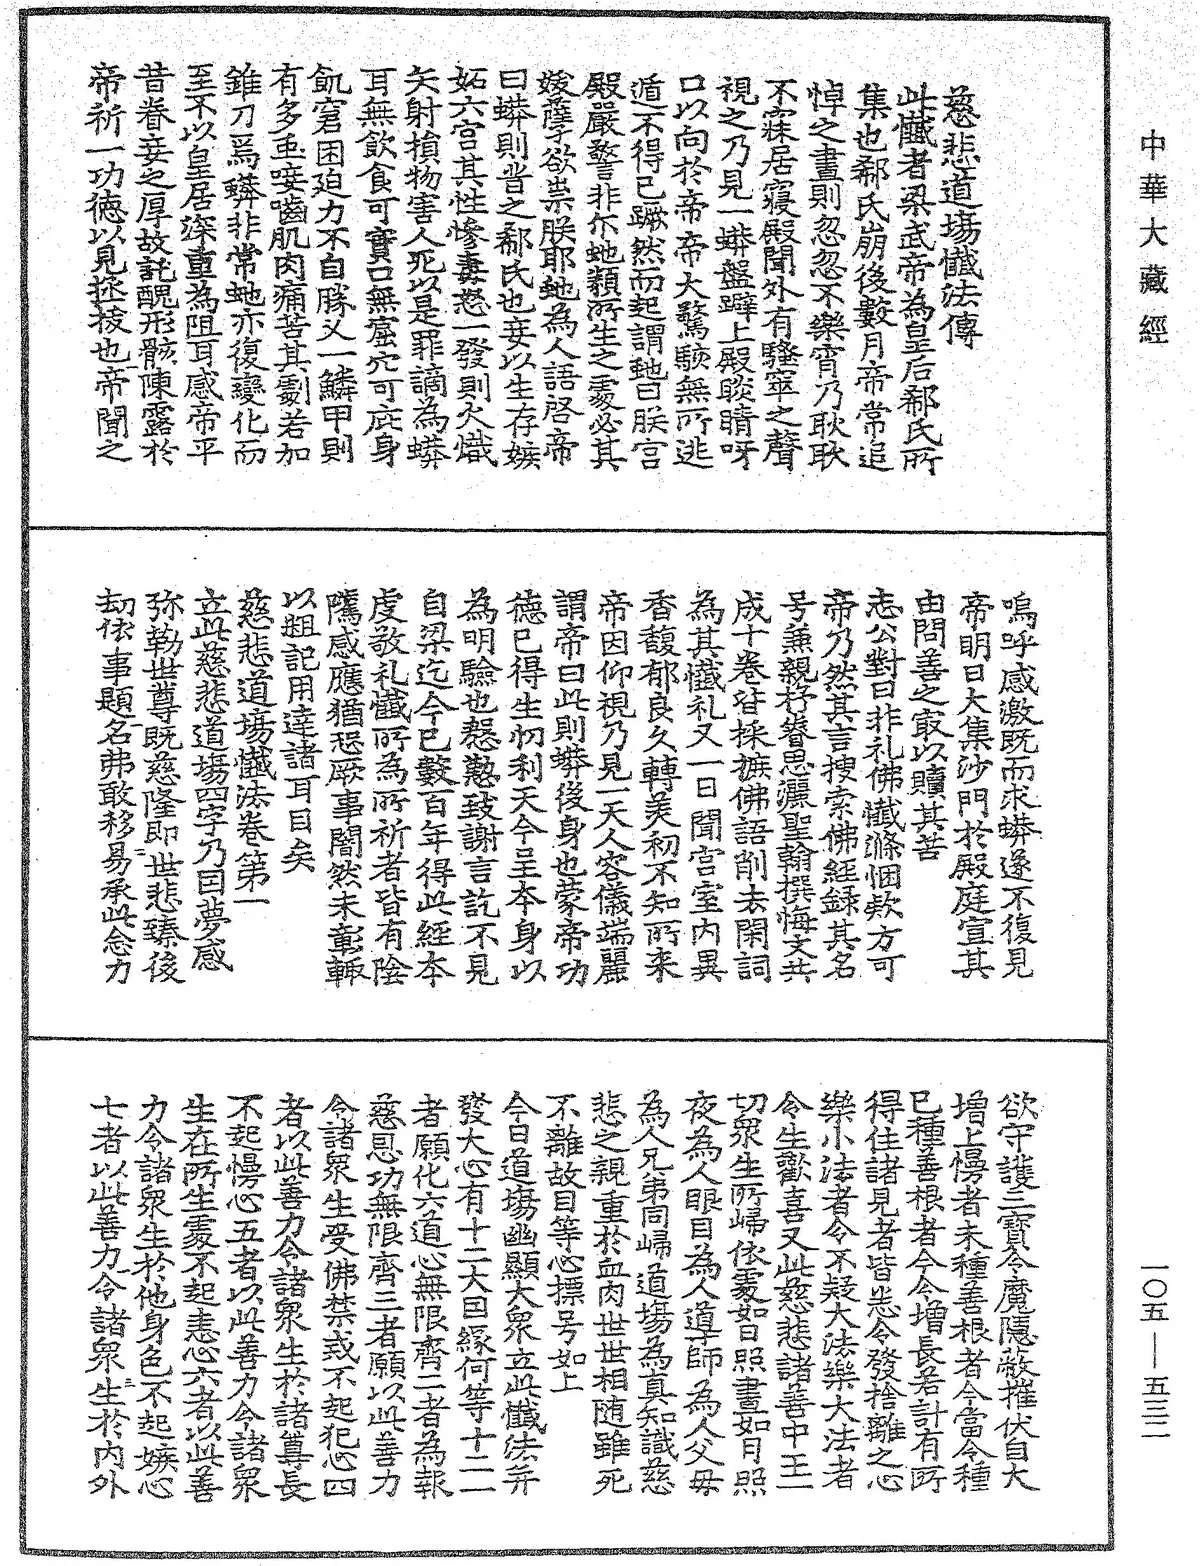 中華大藏經
慈悲道場懺法傳
此懺者梁武帝為皇后郗氏所
集也郗氏崩後數月帝常追
悼之晝則忽忽不樂宵乃耿耿
不寐居寢殿聞外有騷窣之聲
視之乃見一蟒盤躃上殿睒睛呀
口以向於帝帝大驚駭無所逃
遁不得已蹶然而起謂虵曰朕宮
殿嚴警非尒虵類所生之處必其
妖孽欲祟朕耶虵為人語啓帝
曰蟒則昔之郗氏也妾以生存嫉
妬六宮其性慘毒怒一發則火熾
矢射損物害人死以是罪謫為蟒
耳無飲食可實口無窟穴可庇身
飢窘困迫力不自勝又一鱗甲則
有多虫唼嚙肌肉痛苦其劇若加
錐刀焉蟒非常虵亦復變化而
至不以皇居深重為阻耳感帝平
昔眷妾之厚故託醜形骸陳露於
帝祈一功德以見拯拔也帝聞之
嗚呼感激既而求蟒遂不復見
帝明日大集沙門於殿庭宣其
由問善之㝡以贖其苦
志公對曰非礼佛懺滌悃款方可
帝乃然其言搜索佛經錄其名
号兼親抒睿思灑聖翰撰悔文共
成十卷皆採摭佛語削去閑詞
為其懺礼又一日聞宮室內異
香馥郁良久轉美初不知所来
帝因仰視乃見一天人容儀端麗
謂帝曰此則蟒後身也蒙帝功
德已得生忉利天今呈本身以
為明驗也慇懃致謝言訖不見
自梁迄今已數百年得此經本
虔敬礼懺所為所祈者皆有陰
隲感應猶恐厥事闇然未彰輙
以粗記用達諸耳目矣
慈悲道場懺法卷第一
立此慈悲道場四字乃因夢感
弥勒世尊既慈隆即世悲臻後
刼依事題名弗敢移易承此念力
欲守護三寶令魔隱蔽摧伏自大
增上慢者未種善根者令當令種
已種善根者今令增長若計有所
得住諸見者皆悉令發捨離之心
樂小法者令不疑大法樂大法者
令生歡喜又此慈悲諸善中王一
切眾生所歸依處如日照晝如月照
夜為人眼目為人導師為人父母
為人兄弟同歸道場為真知識慈
悲之親重於血肉世世相随雖死
不離故目等心標号如上
今日道場幽顯大眾立此懺法并
發大心有十二大因緣何等十二一
者願化六道心無限齊二者為報
慈恩功無限齊三者願以此善力
令諸眾生受佛禁戒不起犯心四
者以此善力令諸眾生於諸尊長
不起慢心五者以此善力令諸眾
生在所生處不起恚心六者以此善
力令諸眾生於他身色不起嫉心
七者以此善力令諸眾生於內外
一〇五—五三二